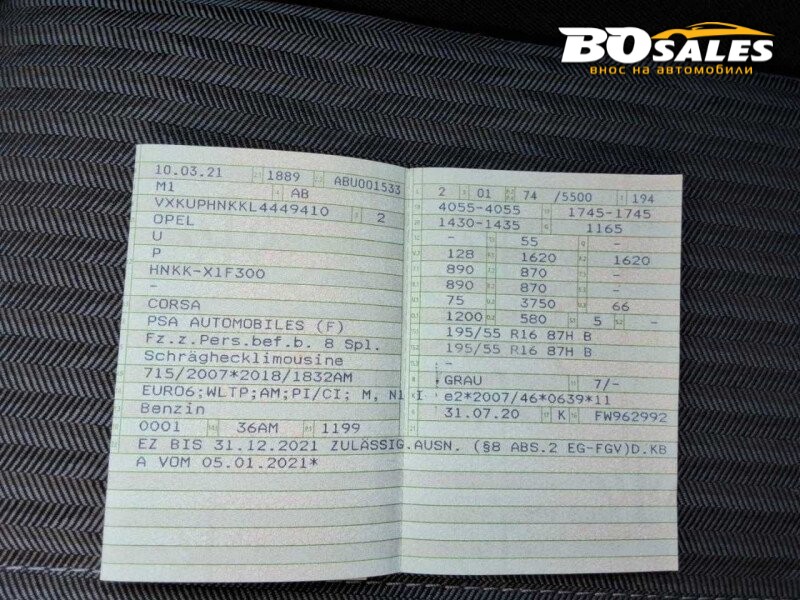 BOSALES
внос на автомобили
10.03.21 1889 ABU001533
M1 AB
VXKUPHNKKL4449410 2
OPEL
U
P
HNKK-X1F300
-
CORSA
PSA AUTOMOBILES (F)
Fz.z.Pers.bef.b. 8 Spl.
Schräghecklimousine
715/2007*2018/1832AM
EURO6;WLTP;AM;PI/CI; M, N1 I
Benzin
0001 36AM 1199
EZ BIS 31.12.2021 ZULÄSSIG.AUSN. (§8 ABS.2 EG-FGV)D.KB
A VOM 05.01.2021*
2 01 74 /5500 194
4055-4055 1745-1745
1430-1435 1165
- 55 -
128 1620 1620
890 870 -
890 870 -
75 3750 66
1200 580 5 -
195/55 R16 87H B
195/55 R16 87H B
-
GRAU 7/-
e2*2007/46*0639*11
31.07.20 K FW962992